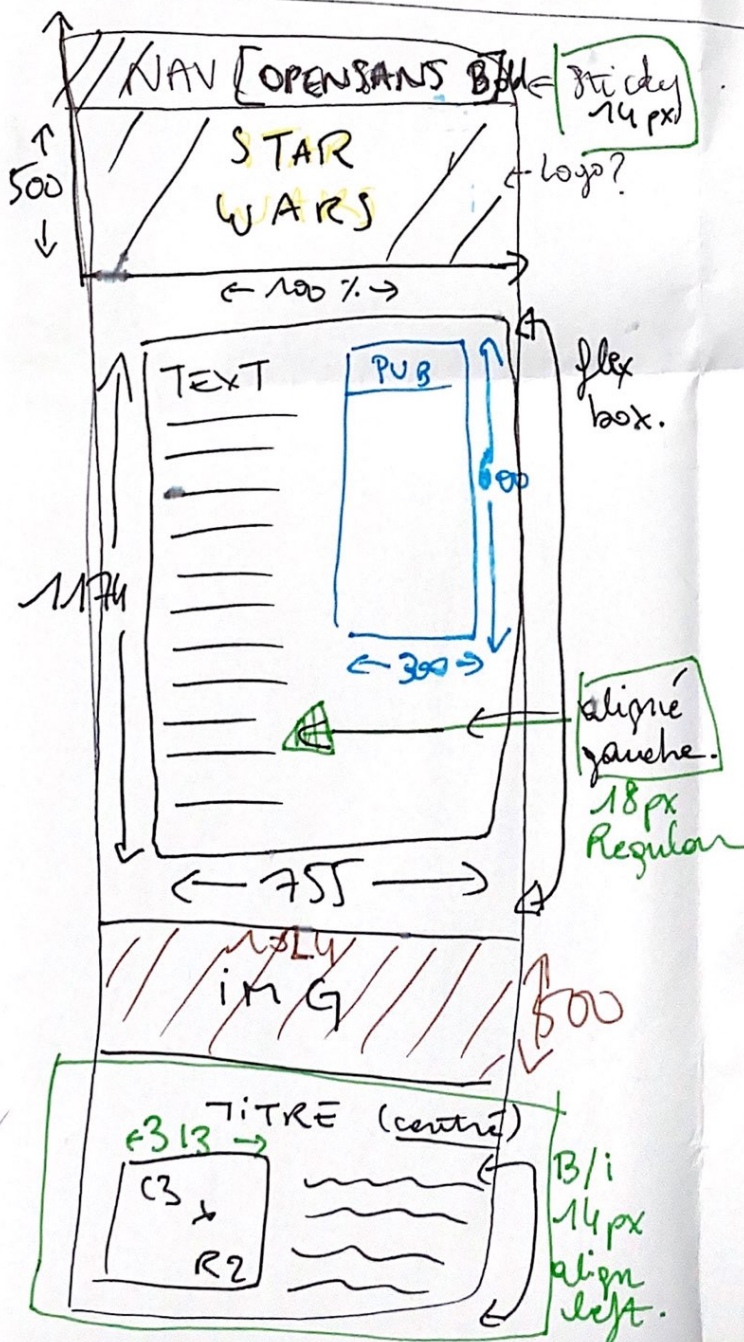 NAV [OPENSANS Bold
sticky
14 px
500
STAR
WARS
Logo?
100 %
TEXT
PUB
flex
box.
600
1174
300
aligné
gauche.
18 px
Regular
755
1024
imG
500
TITRE (centré)
313
C3
R2
B/i
14 px
align
left.